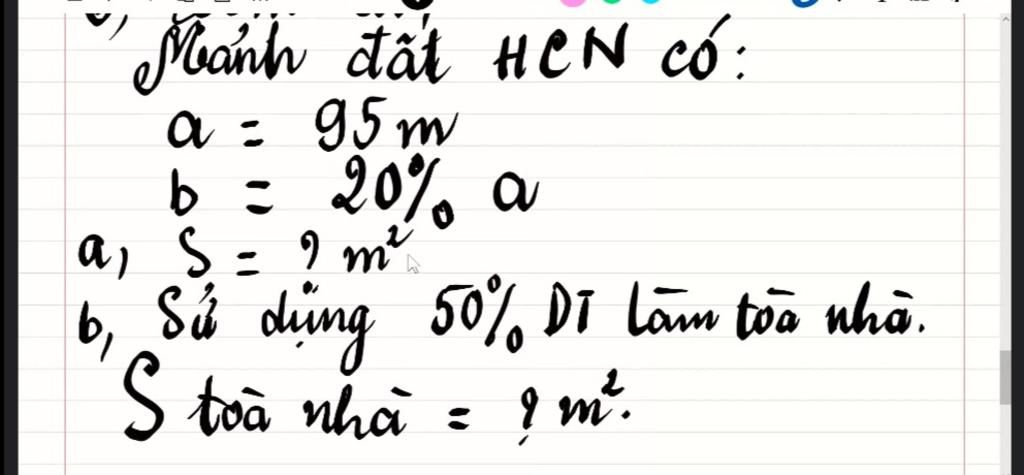 Mảnh đất HCN có:
a = 95m
b = 20% a
a, S = ? m²
b, Sử dụng 50% DT làm toà nhà.
S toà nhà = ? m².